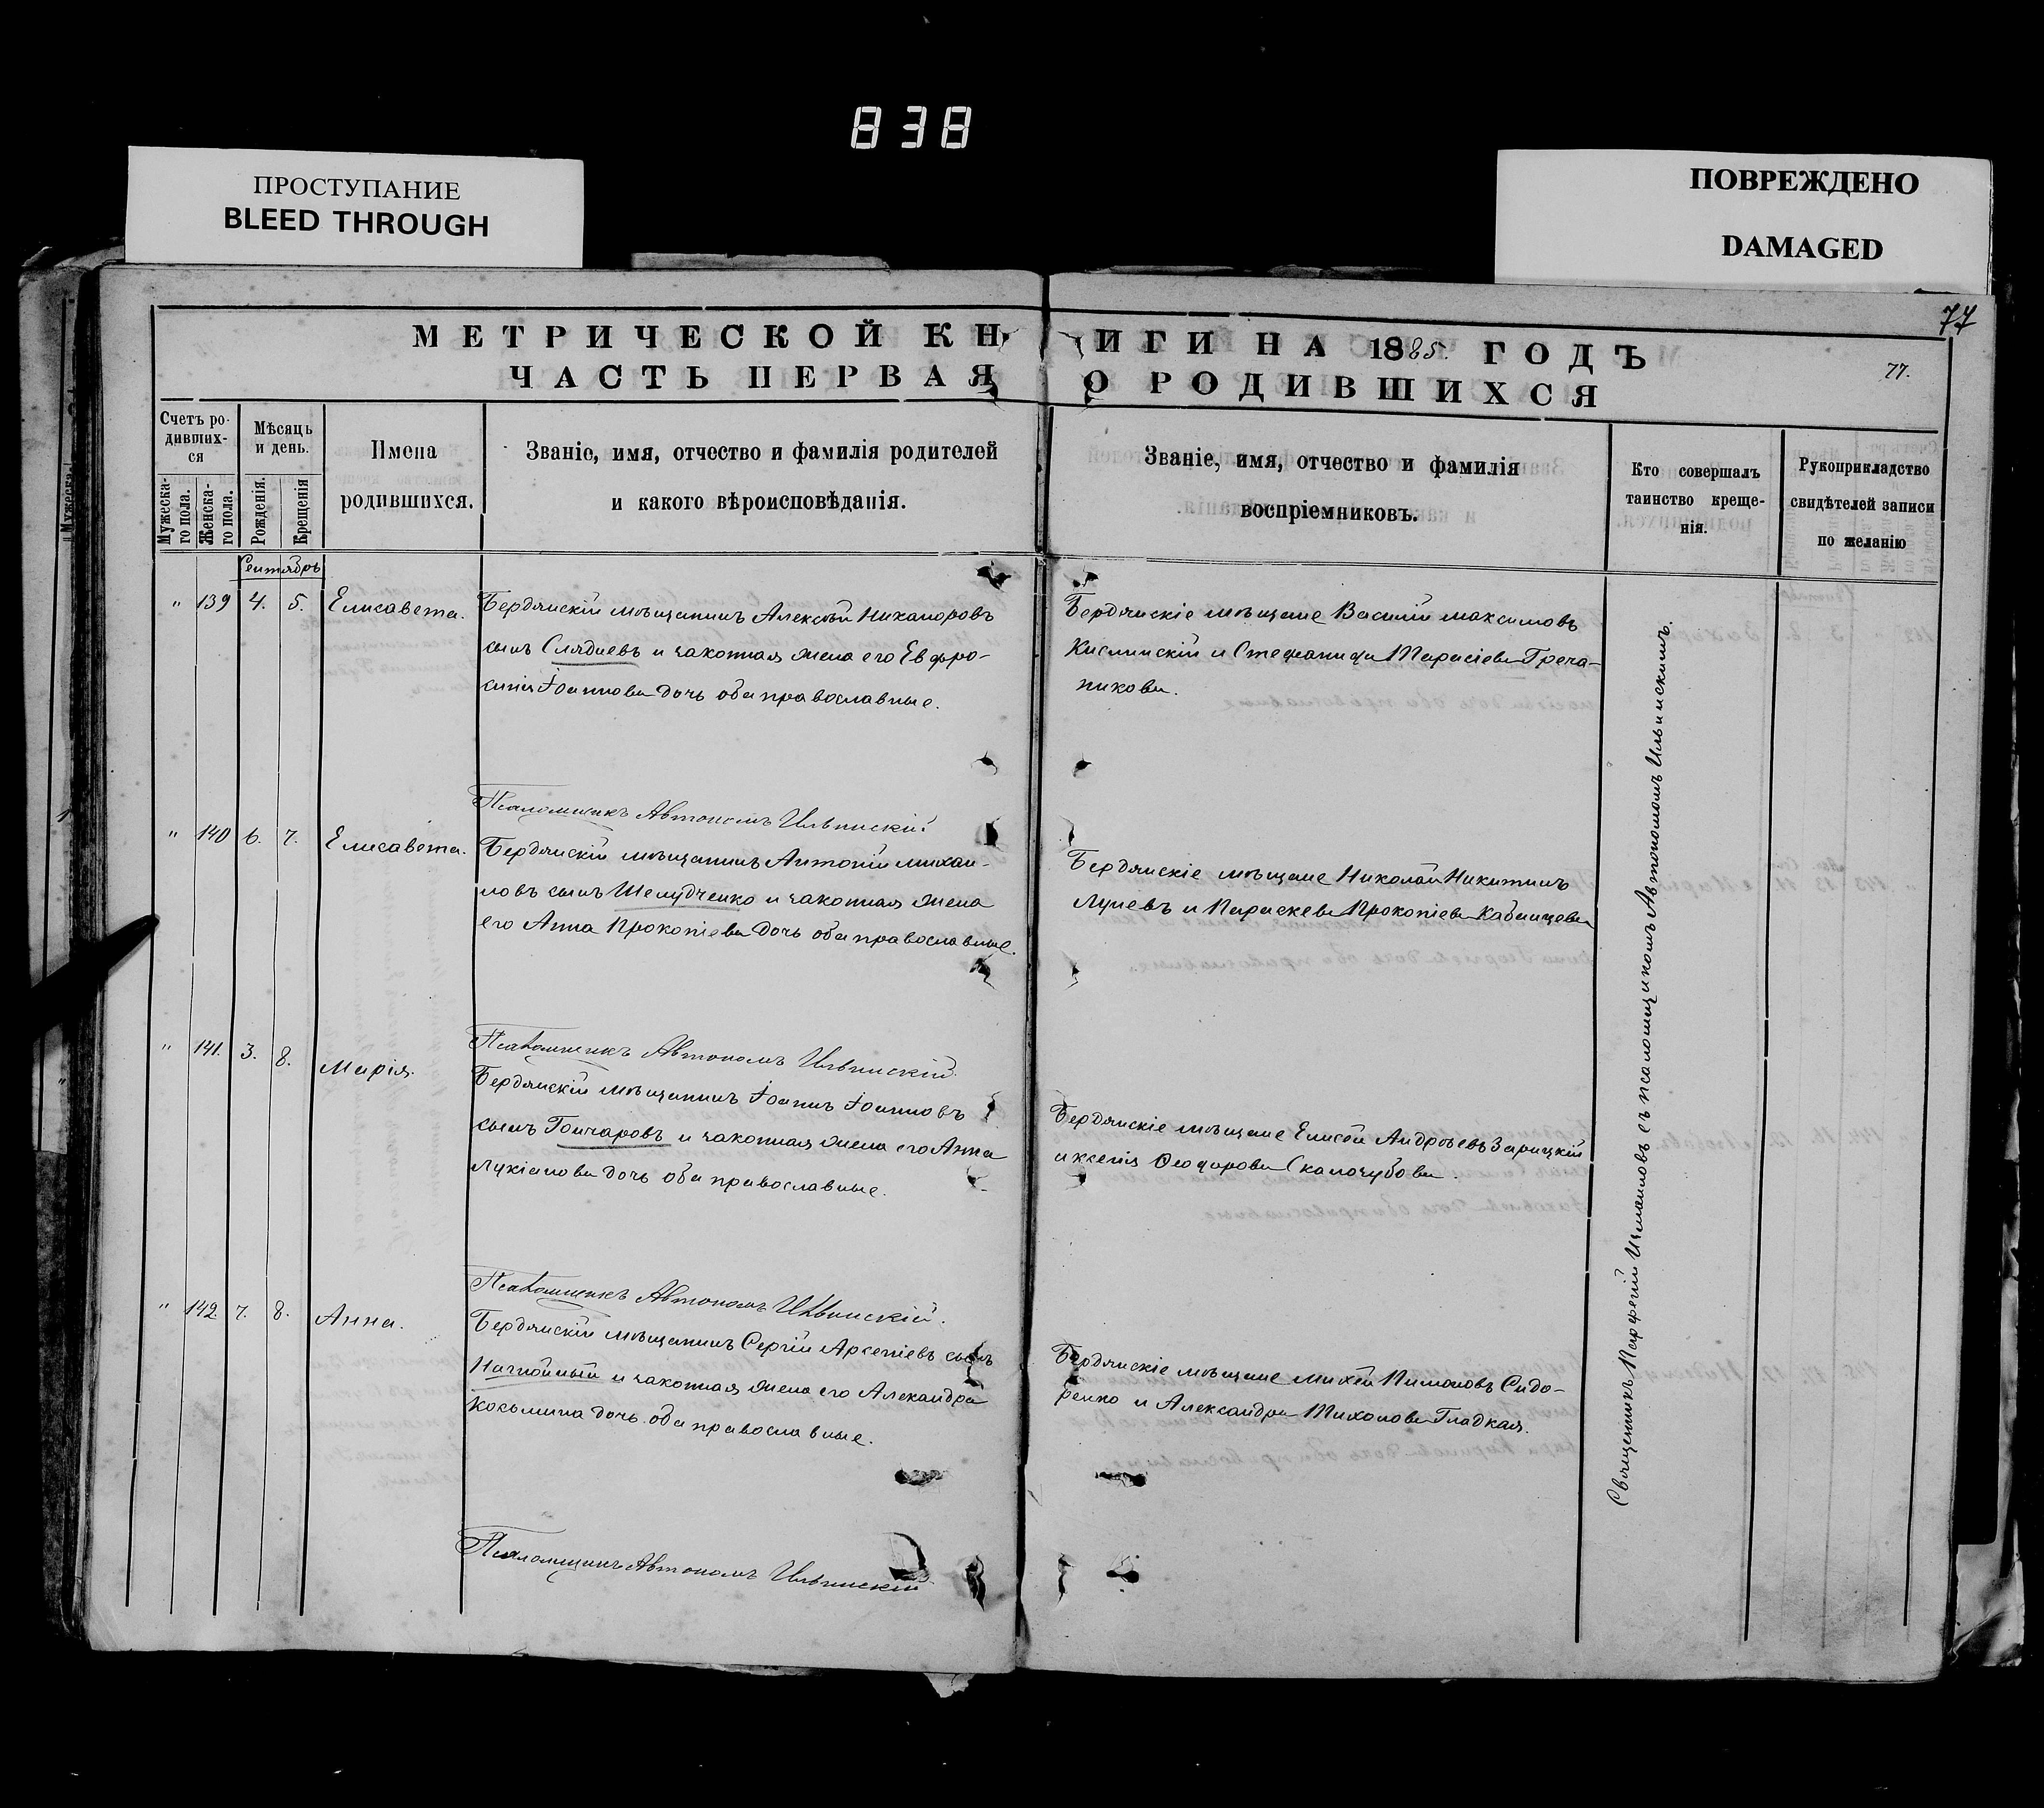 838
ПРОСТУПАНИЕ
BLEED THROUGH
ПОВРЕЖДЕНО
DAMAGED
77
МЕТРИЧЕСКОЙ КНИГИ НА 1885. ГОДЪ
ЧАСТЬ ПЕРВАЯ О РОДИВШИХСЯ
77.
Счетъ ро-
дивших-
ся
Мужеска-
го пола.
Женска-
го пола.
Мѣсяцъ
и день.
Рожденія.
Крещенія
Имена
родившихся.
Званіе, имя, отчество и фамилія родителей
и какого вѣроисповѣданія.
Званіе, имя, отчество и фамилія
воспріемниковъ.
Кто совершалъ
таинство креще-
нія.
Рукоприкладство
свидѣтелей записи
по желанію
Сентябрь
" 139 4. 5. Елисавета.
Бердянскій мѣщанинъ Алексѣй Никаноровъ
сынъ Слядневъ и законная жена его Евфро-
синія Іоаннова дочь оба православные.
Бердянскіе мѣщане Василій Максимовъ
Кислинскій и Стефанида Тарасіева Греча-
никова.
Псаломщикъ Автономъ Ильинскій
" 140 6. 7. Елисавета.
Бердянскій мѣщанинъ Антоній Михаи-
ловъ сынъ Шелудченко и законная жена
его Анна Прокопіева дочь оба православные.
Бердянскіе мѣщане Николай Никитинъ
Луневъ и Параскева Прокопіева Кабанцева
Псаломщикъ Автономъ Ильинскій
" 141. 3. 8. Марія.
Бердянскій мѣщанинъ Іоаннъ Іоанновъ
сынъ Гончаровъ и законная жена его Анна
Лукіанова дочь оба православные.
Бердянскіе мѣщане Елисѣй Андреевъ Зарицкій
и Ксенія Ѳеодорова Скалозубова.
Псаломщикъ Автономъ Ильинскій.
" 142 7. 8. Анна.
Бердянскій мѣщанинъ Сергій Арсеніевъ сынъ
Нагнойный и законная жена его Александра
Косьмина дочь оба православные.
Бердянскіе мѣщане Михей Пимоновъ Сидо-
ренко и Александра Тихонова Гладкая.
Псаломщикъ Автономъ Ильинскій
Священникъ Парфеній Измаиловъ съ псаломщикомъ Автономомъ Ильинскимъ.